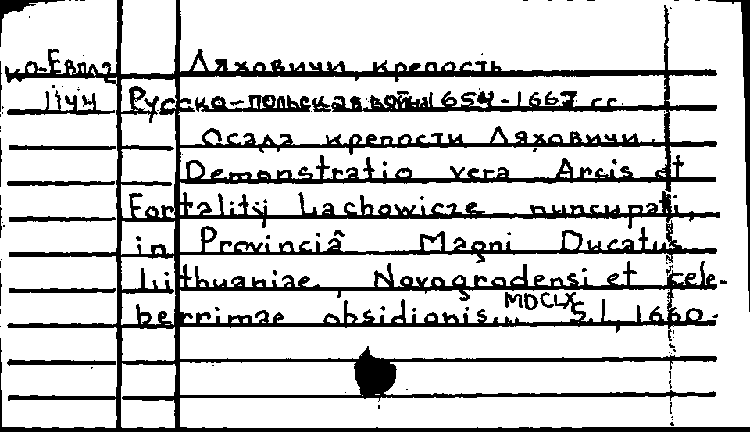 Ко-Евпл2 Ляховичи, крепость
1144 Русско-польская война 1654-1667 гг.
Осада крепости Ляховичи.
Demonstratio vera Arcis et
Fortalitÿ Lachowicze nuncupati,
in Provinciâ Magni Ducatus
Lithuaniae, Novogrodensi et cele-
berrimae obsidionis... MDCLX S.l., 1660.